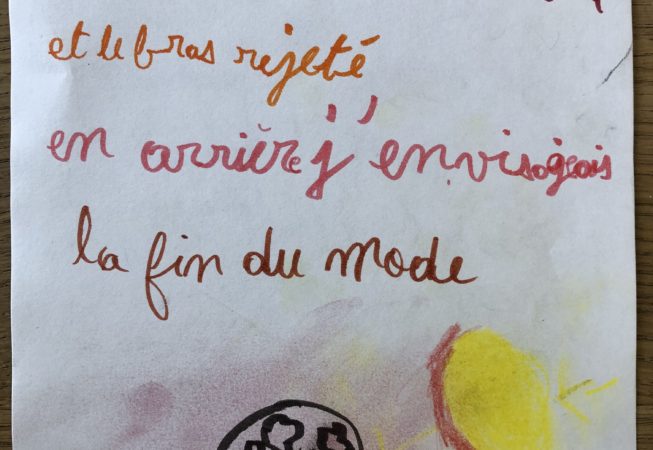 et le bras rejeté
en arrière j' envisageais
la fin du mode